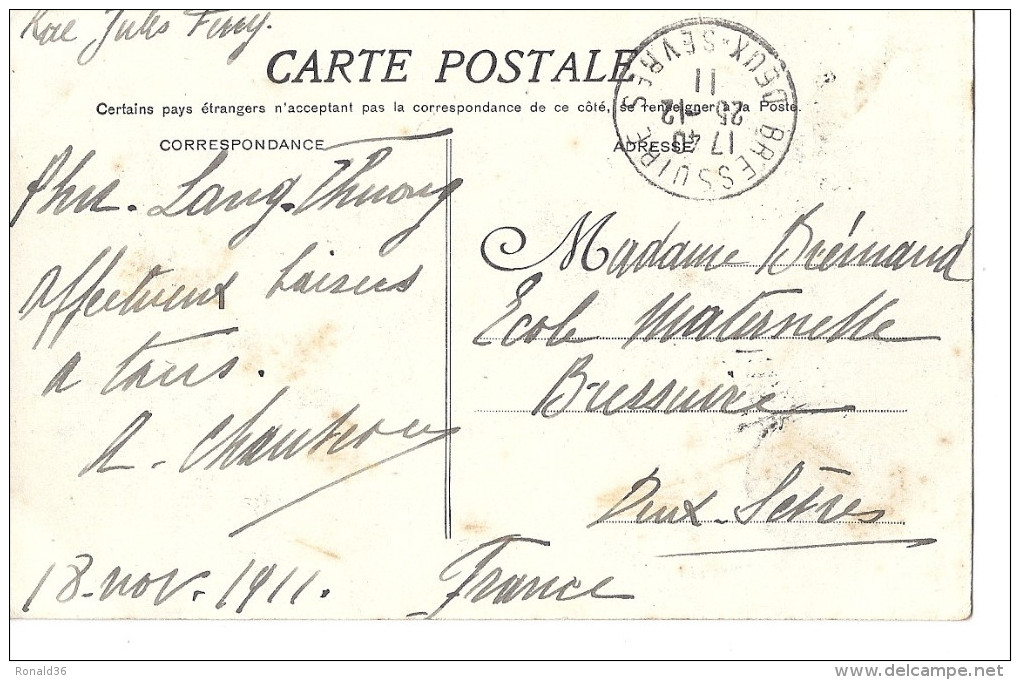 Rue Jules Ferry.
CARTE POSTALE
Certains pays étrangers n'acceptant pas la correspondance de ce côté, se renseigner à la Poste.
CORRESPONDANCE
ADRESSE
BRESSUIRE DEUX-SEVRES
17 40
25-12
11
Phu-Lang-Thuong
Affectueux baisers
a tous.
A.
18-nov.-1911.
Madame Brémaud
Ecole Maternelle
Bressuire
Deux-Sèvres
France
Ronald36
www.delcampe.net